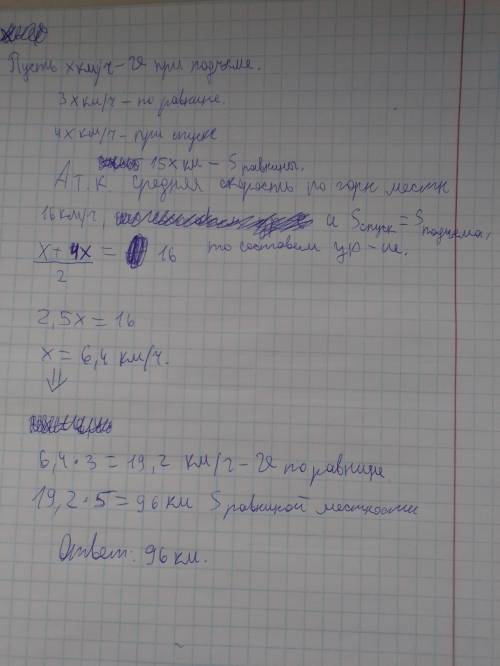 Пусть x км/ч - v при подъеме.
3x км/ч - по равнине.
4x км/ч - при спуске
15x км - S равнины.
А т.к средняя скорость по горн местн
16 км/ч, и S спуск = S подъема,
x + 4x / 2 = 16 то составем ур-ие.
2,5x = 16
x = 6,4 км/ч.
⇓
6,4 · 3 = 19,2 км/ч - v по равнине
19,2 · 5 = 96 км S равниной местности
Ответ: 96 км.